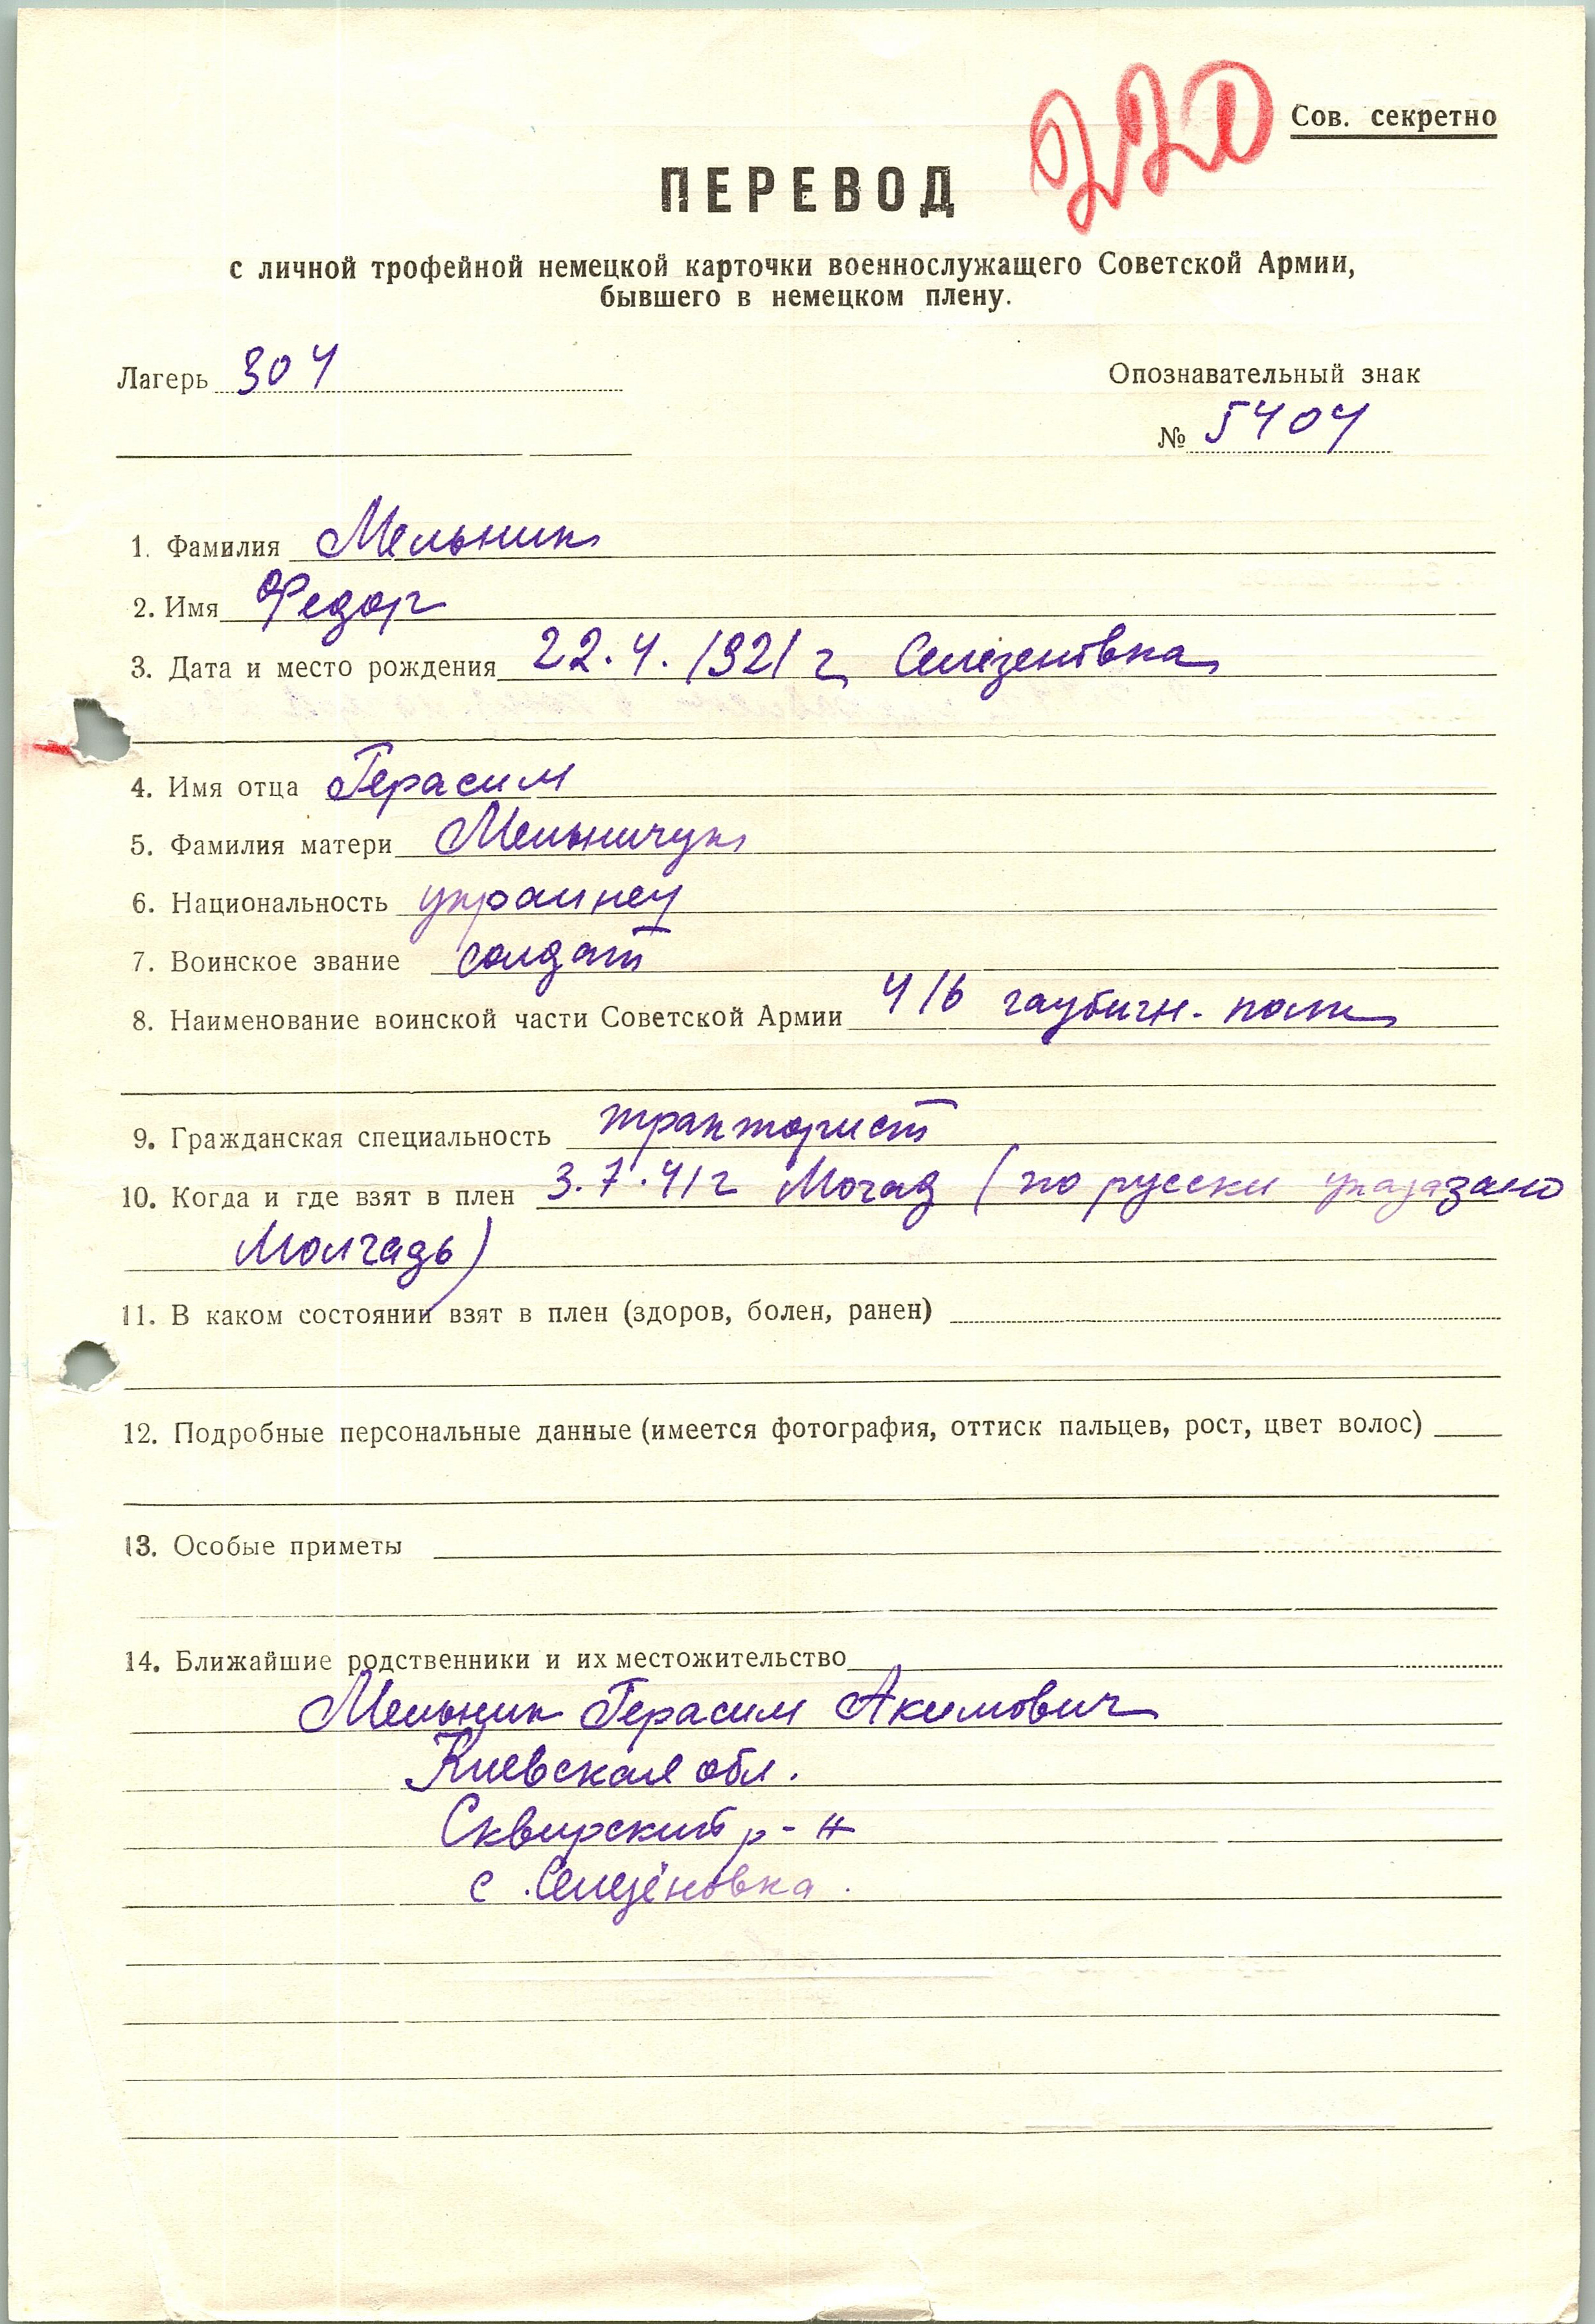 220
Сов. секретно
ПЕРЕВОД
с личной трофейной немецкой карточки военнослужащего Советской Армии,
бывшего в немецком плену.
Лагерь 304
Опознавательный знак
№ 5404
1. Фамилия Мельник
2. Имя Федор
3. Дата и место рождения 22.4.1921 г Селезеновка
4. Имя отца Герасим
5. Фамилия матери Мельничук
6. Национальность украинец
7. Воинское звание солдат
8. Наименование воинской части Советской Армии 416 гаубичн. полк
9. Гражданская специальность тракторист
10. Когда и где взят в плен 3.7.41 г Могад (по русски указано
Молчадь)
11. В каком состоянии взят в плен (здоров, болен, ранен)
12. Подробные персональные данные (имеется фотография, оттиск пальцев, рост, цвет волос)
13. Особые приметы
14. Ближайшие родственники и их местожительство
Мельник Герасим Акимович
Киевская обл.
Сквирский р-н
с. Селезёновка.